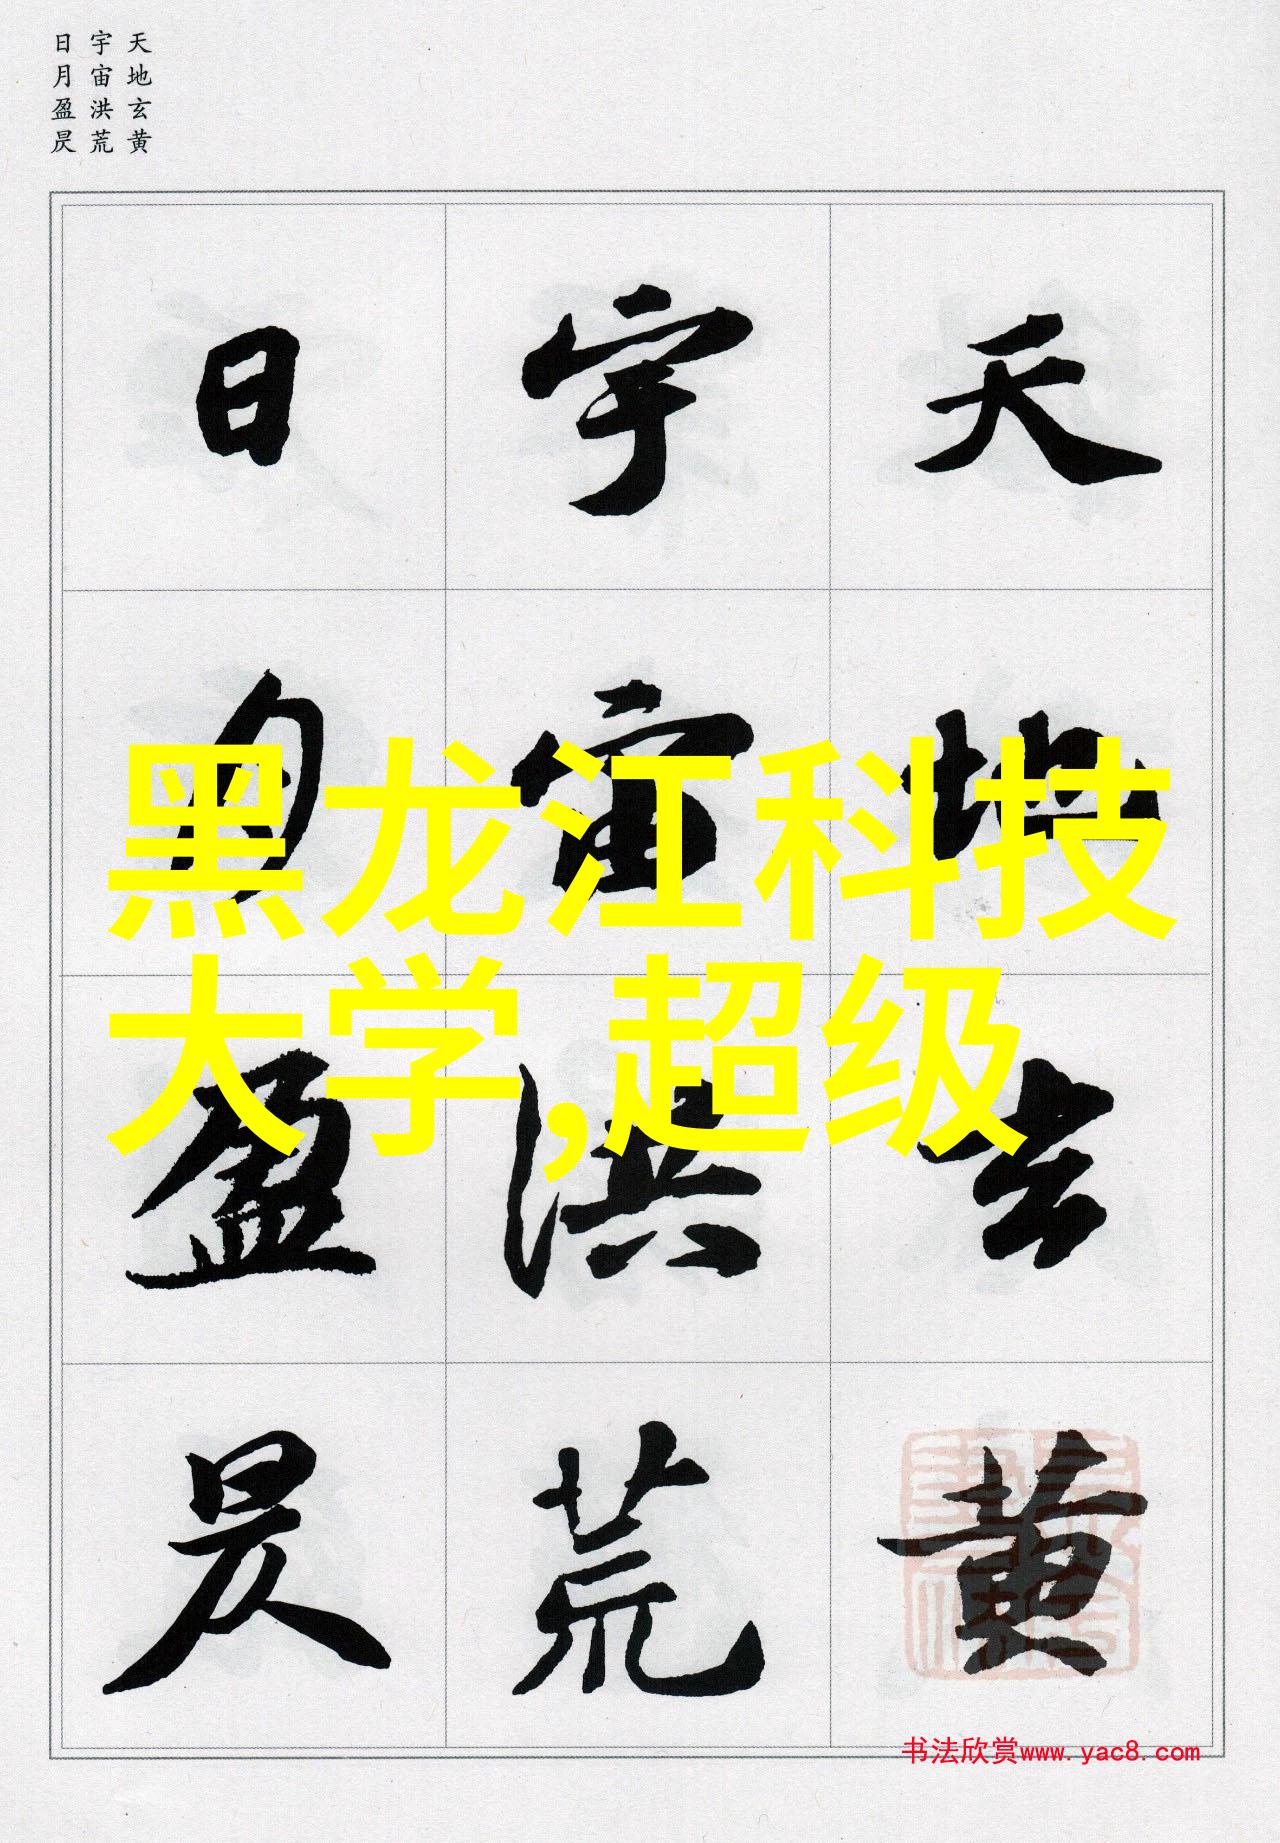 天地玄黄
宇宙洪荒
日月盈昃
天地玄黄
宇宙洪荒
日月盈昃
黑龙江科技
大学,超级
书法欣赏www.yac8.com